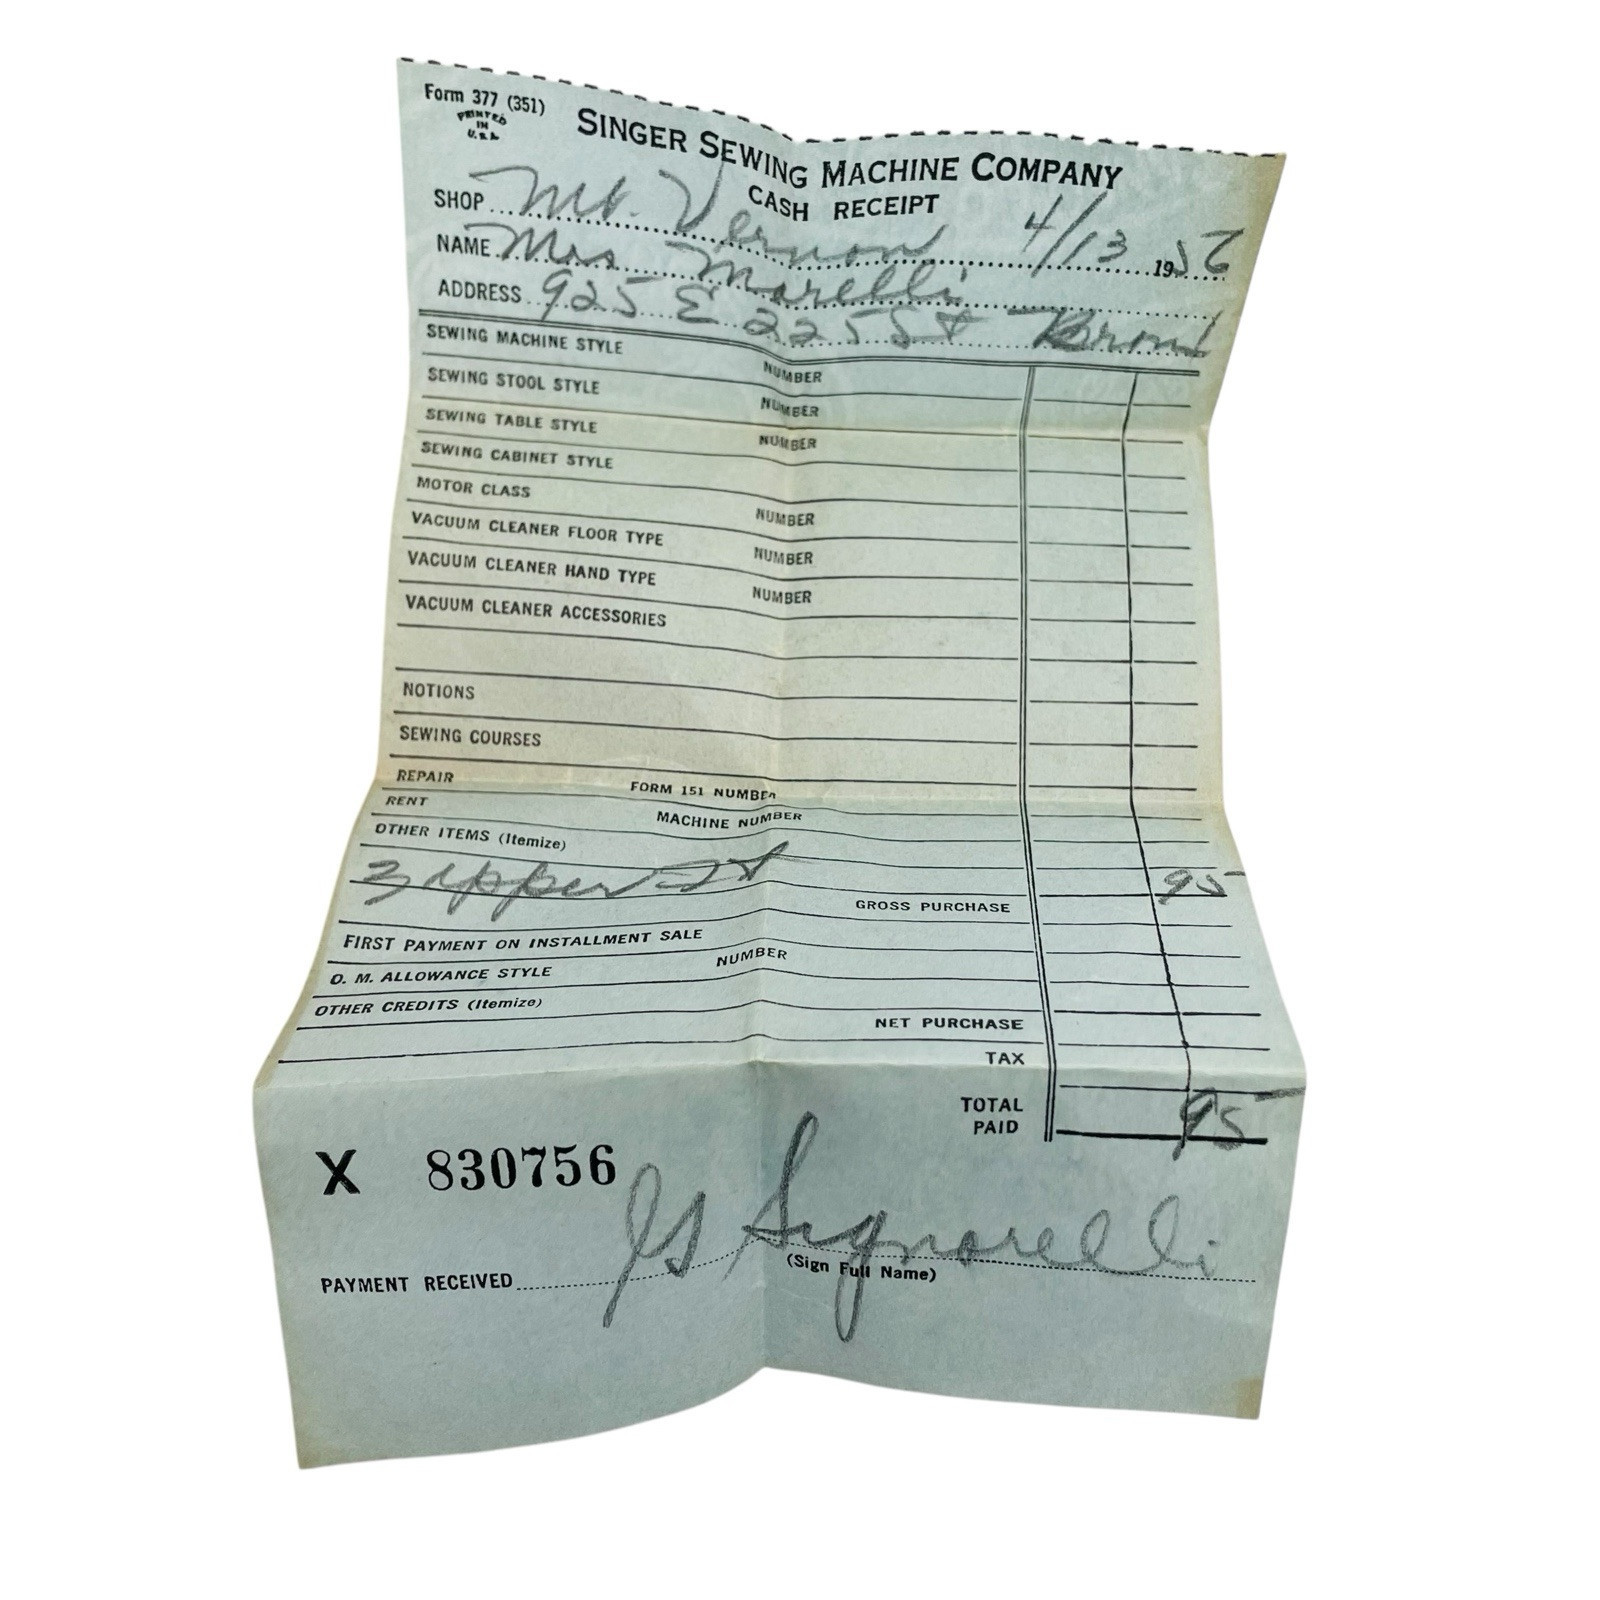 Form 377 (351)
PRINTED
IN
U.S.A.
SINGER SEWING MACHINE COMPANY
CASH RECEIPT
SHOP Mt. Vernon 4/13 1956
NAME Mrs Morelli
ADDRESS 925 E 225 St Bronx
SEWING MACHINE STYLE NUMBER
SEWING STOOL STYLE NUMBER
SEWING TABLE STYLE NUMBER
SEWING CABINET STYLE
MOTOR CLASS NUMBER
VACUUM CLEANER FLOOR TYPE NUMBER
VACUUM CLEANER HAND TYPE NUMBER
VACUUM CLEANER ACCESSORIES
NOTIONS
SEWING COURSES
REPAIR FORM 151 NUMBER
RENT MACHINE NUMBER
OTHER ITEMS (Itemize)
Zipper 95
GROSS PURCHASE
FIRST PAYMENT ON INSTALLMENT SALE
O. M. ALLOWANCE STYLE NUMBER
OTHER CREDITS (Itemize)
NET PURCHASE
TAX
TOTAL
PAID 95
X 830756
PAYMENT RECEIVED Signorelli
(Sign Full Name)